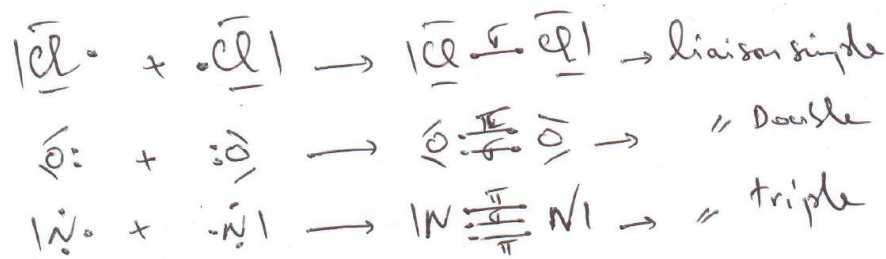 |Cl· + ·Cl| → |Cl σ Cl| → liaison simple
O: + :O → O π σ O → " Double
|N· + ·N| → |N π σ π N| → " triple